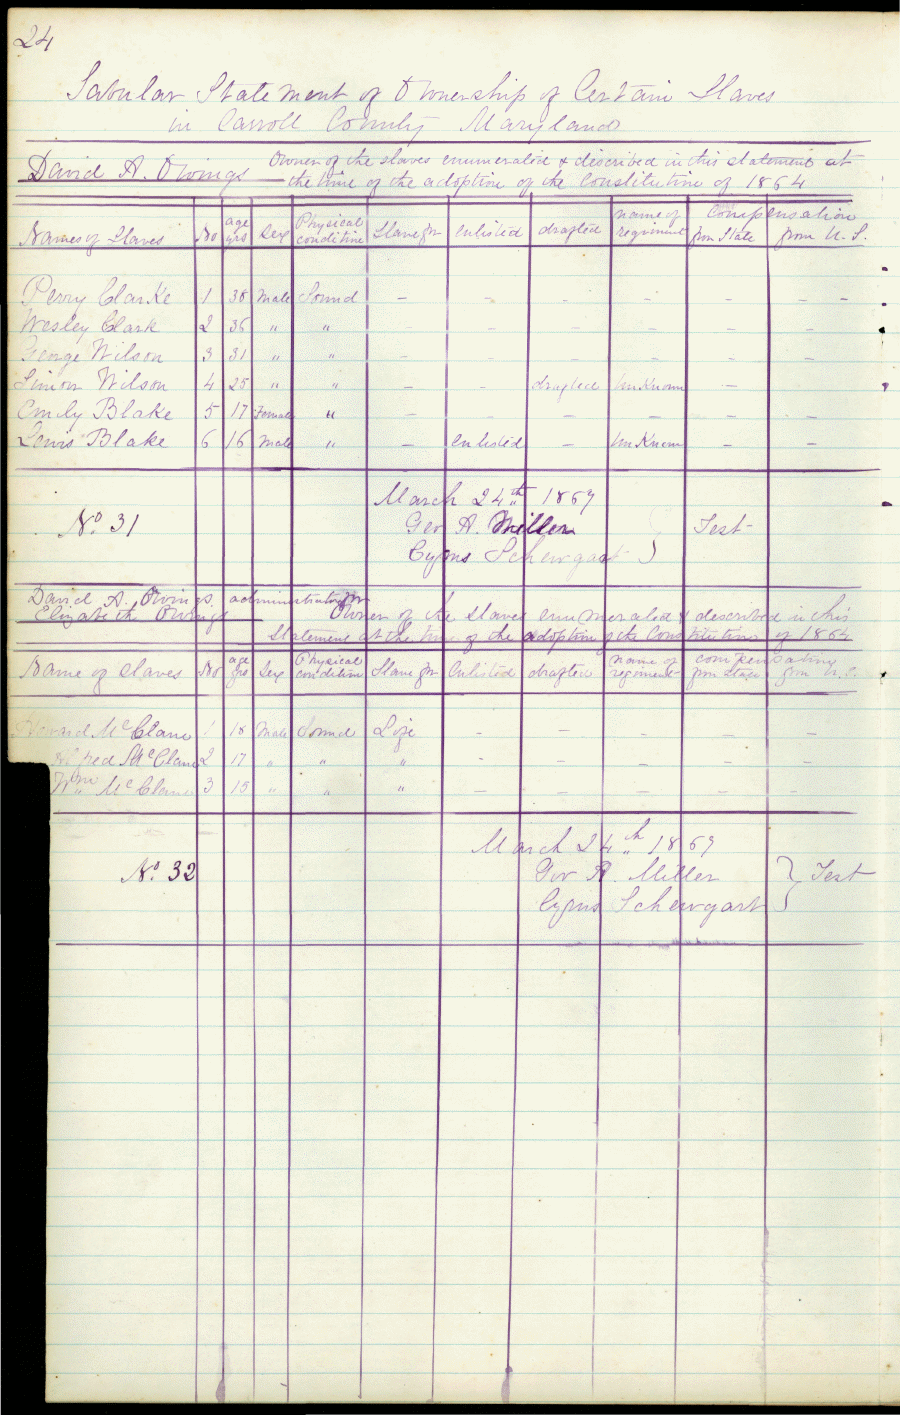 24
Tabular Statement of Ownership of Certain Slaves
in Carroll County Maryland
David A. Owings Owner of the slaves enumerated & described in this statement at
the time of the adoption of the Constitution of 1864
Names of Slaves No age yrs Sex Physical condition Slave for enlisted drafted name of regiment Compensation from State from U. S.
Perry Clarke 1 38 Male Sound – – – – – – –
Wesley Clark 2 36 " " – – – – – –
George Wilson 3 31 " " – – – – – –
Simon Wilson 4 25 " " – – drafted UnKnown –
Emily Blake 5 17 Female " – – – – – –
Lewis Blake 6 16 Male " – enlisted – UnKnown – –
March 24th 1867
No. 31 Geo A. Miller
Cyrus Schewgart } Test
David A. Owings administrator for
Elizabeth Owings Owner of the slaves enumerated & described in this
Statement at the time of the adoption of the Constitution of 1864
Name of Slaves No age yrs Sex Physical condition Slave for Enlisted drafted name of regiment compensation from State from U. S.
McClane 1 18 Male Sound Life – – – – –
Alfred McClane 2 17 " " " – – – – –
Wm McClane 3 15 " " " – – – – –
March 24th 1867
No. 32 Geo A. Miller } Test
Cyrus Schewgart